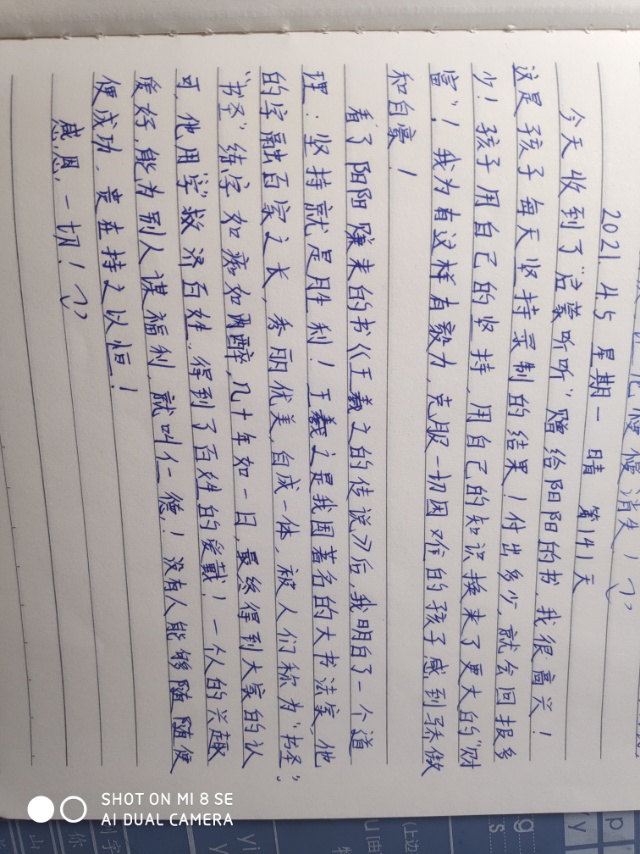 慢慢消失！
2021 4.5 星期一 晴 第141天
今天收到了“启蒙听听”赠给阳阳的书,我很高兴！
这是孩子每天坚持录制的结果！付出多少,就会回报多
少！孩子用自己的坚持,用自己的知识换来了更大的“财
富”！我为有这样有毅力,克服一切困难的孩子感到骄傲
和自豪！
看了阳阳赚来的书《王羲之的传说》后,我明白了一个道
理：坚持就是胜利！王羲之是我国著名的大书法家,他
的字融百家之长,秀丽优美,自成一体,被人们称为“书圣”,
“书圣”练字如痴如醉,几十年如一日,最终得到大家的认
可,他用“字”救济百姓,得到了百姓的爱戴！一个人的兴趣
爱好,能为别人谋福利,就叫仁德！没有人能够随随便
便成功,贵在持之以恒！
感恩一切！
SHOT ON MI 8 SE
AI DUAL CAMERA